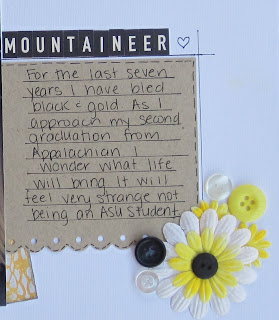 MOUNTAINEER
For the last seven
years I have bled
black & gold. As I
approach my second
graduation from
Appalachian I
wonder what life
will bring. It will
feel very strange not
being an ASU student.